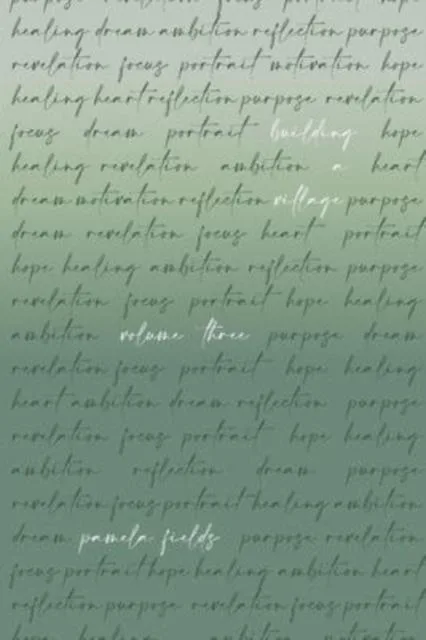 purpose revelation focus portrait hope
healing dream ambition reflection purpose
revelation focus portrait motivation hope
healing heart reflection purpose revelation
focus dream portrait building hope
healing revelation ambition a heart
dream motivation reflection village purpose
dream revelation focus heart portrait
hope healing ambition reflection purpose
revelation focus portrait hope healing
ambition volume three purpose dream
revelation focus portrait hope healing
heart ambition dream reflection purpose
revelation focus portrait hope healing
ambition reflection dream purpose
revelation focus portrait healing ambition
dream pamela fields purpose revelation
focus portrait hope healing ambition heart
reflection purpose revelation focus portrait
hope healing ambition motivation